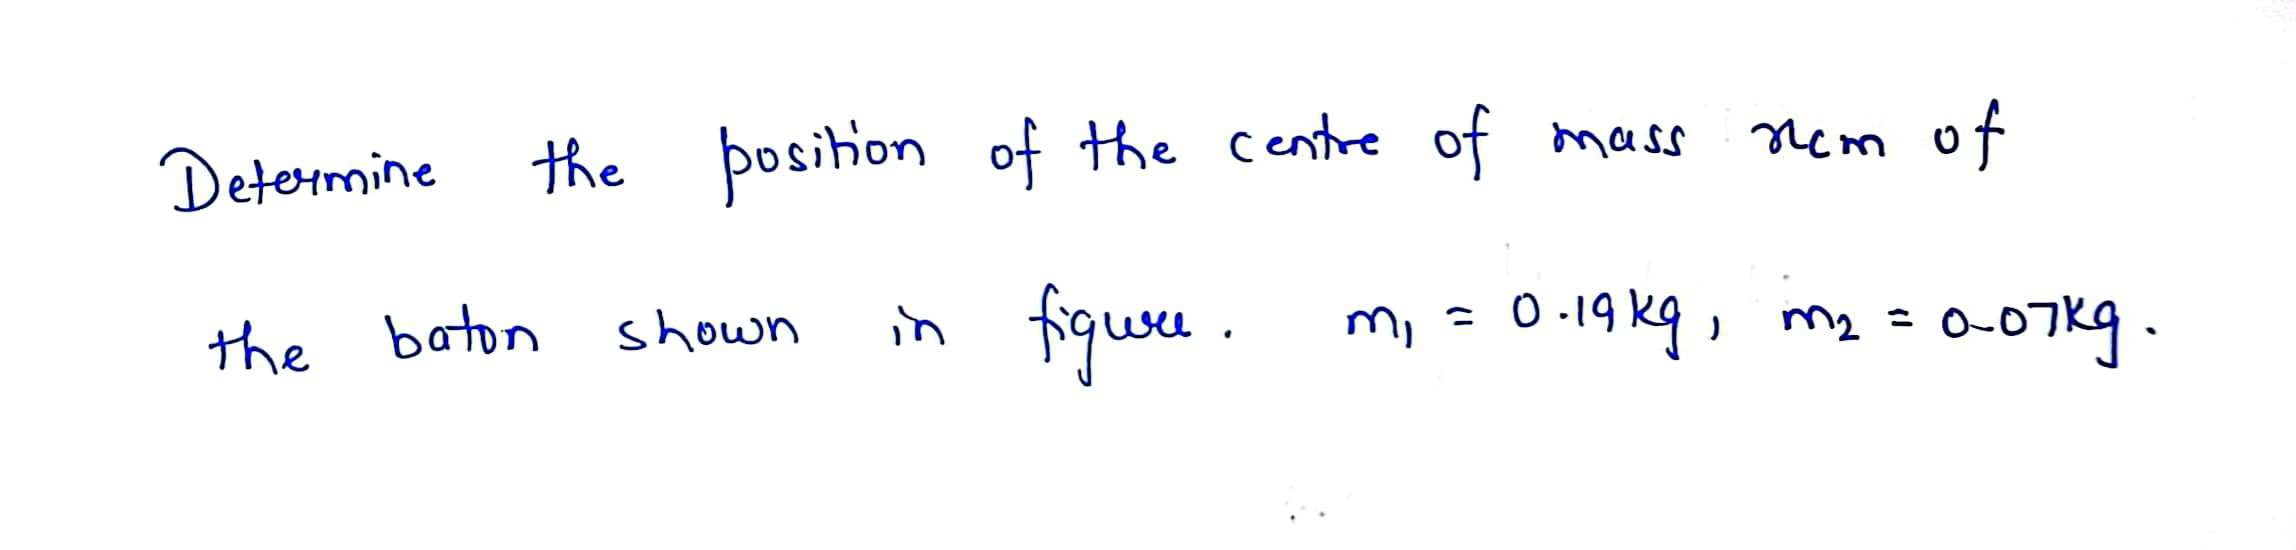 Determine the position of the centre of mass xcm of
the baton shown in figure. m₁ = 0.19 kg, m₂ = 0.07kg.